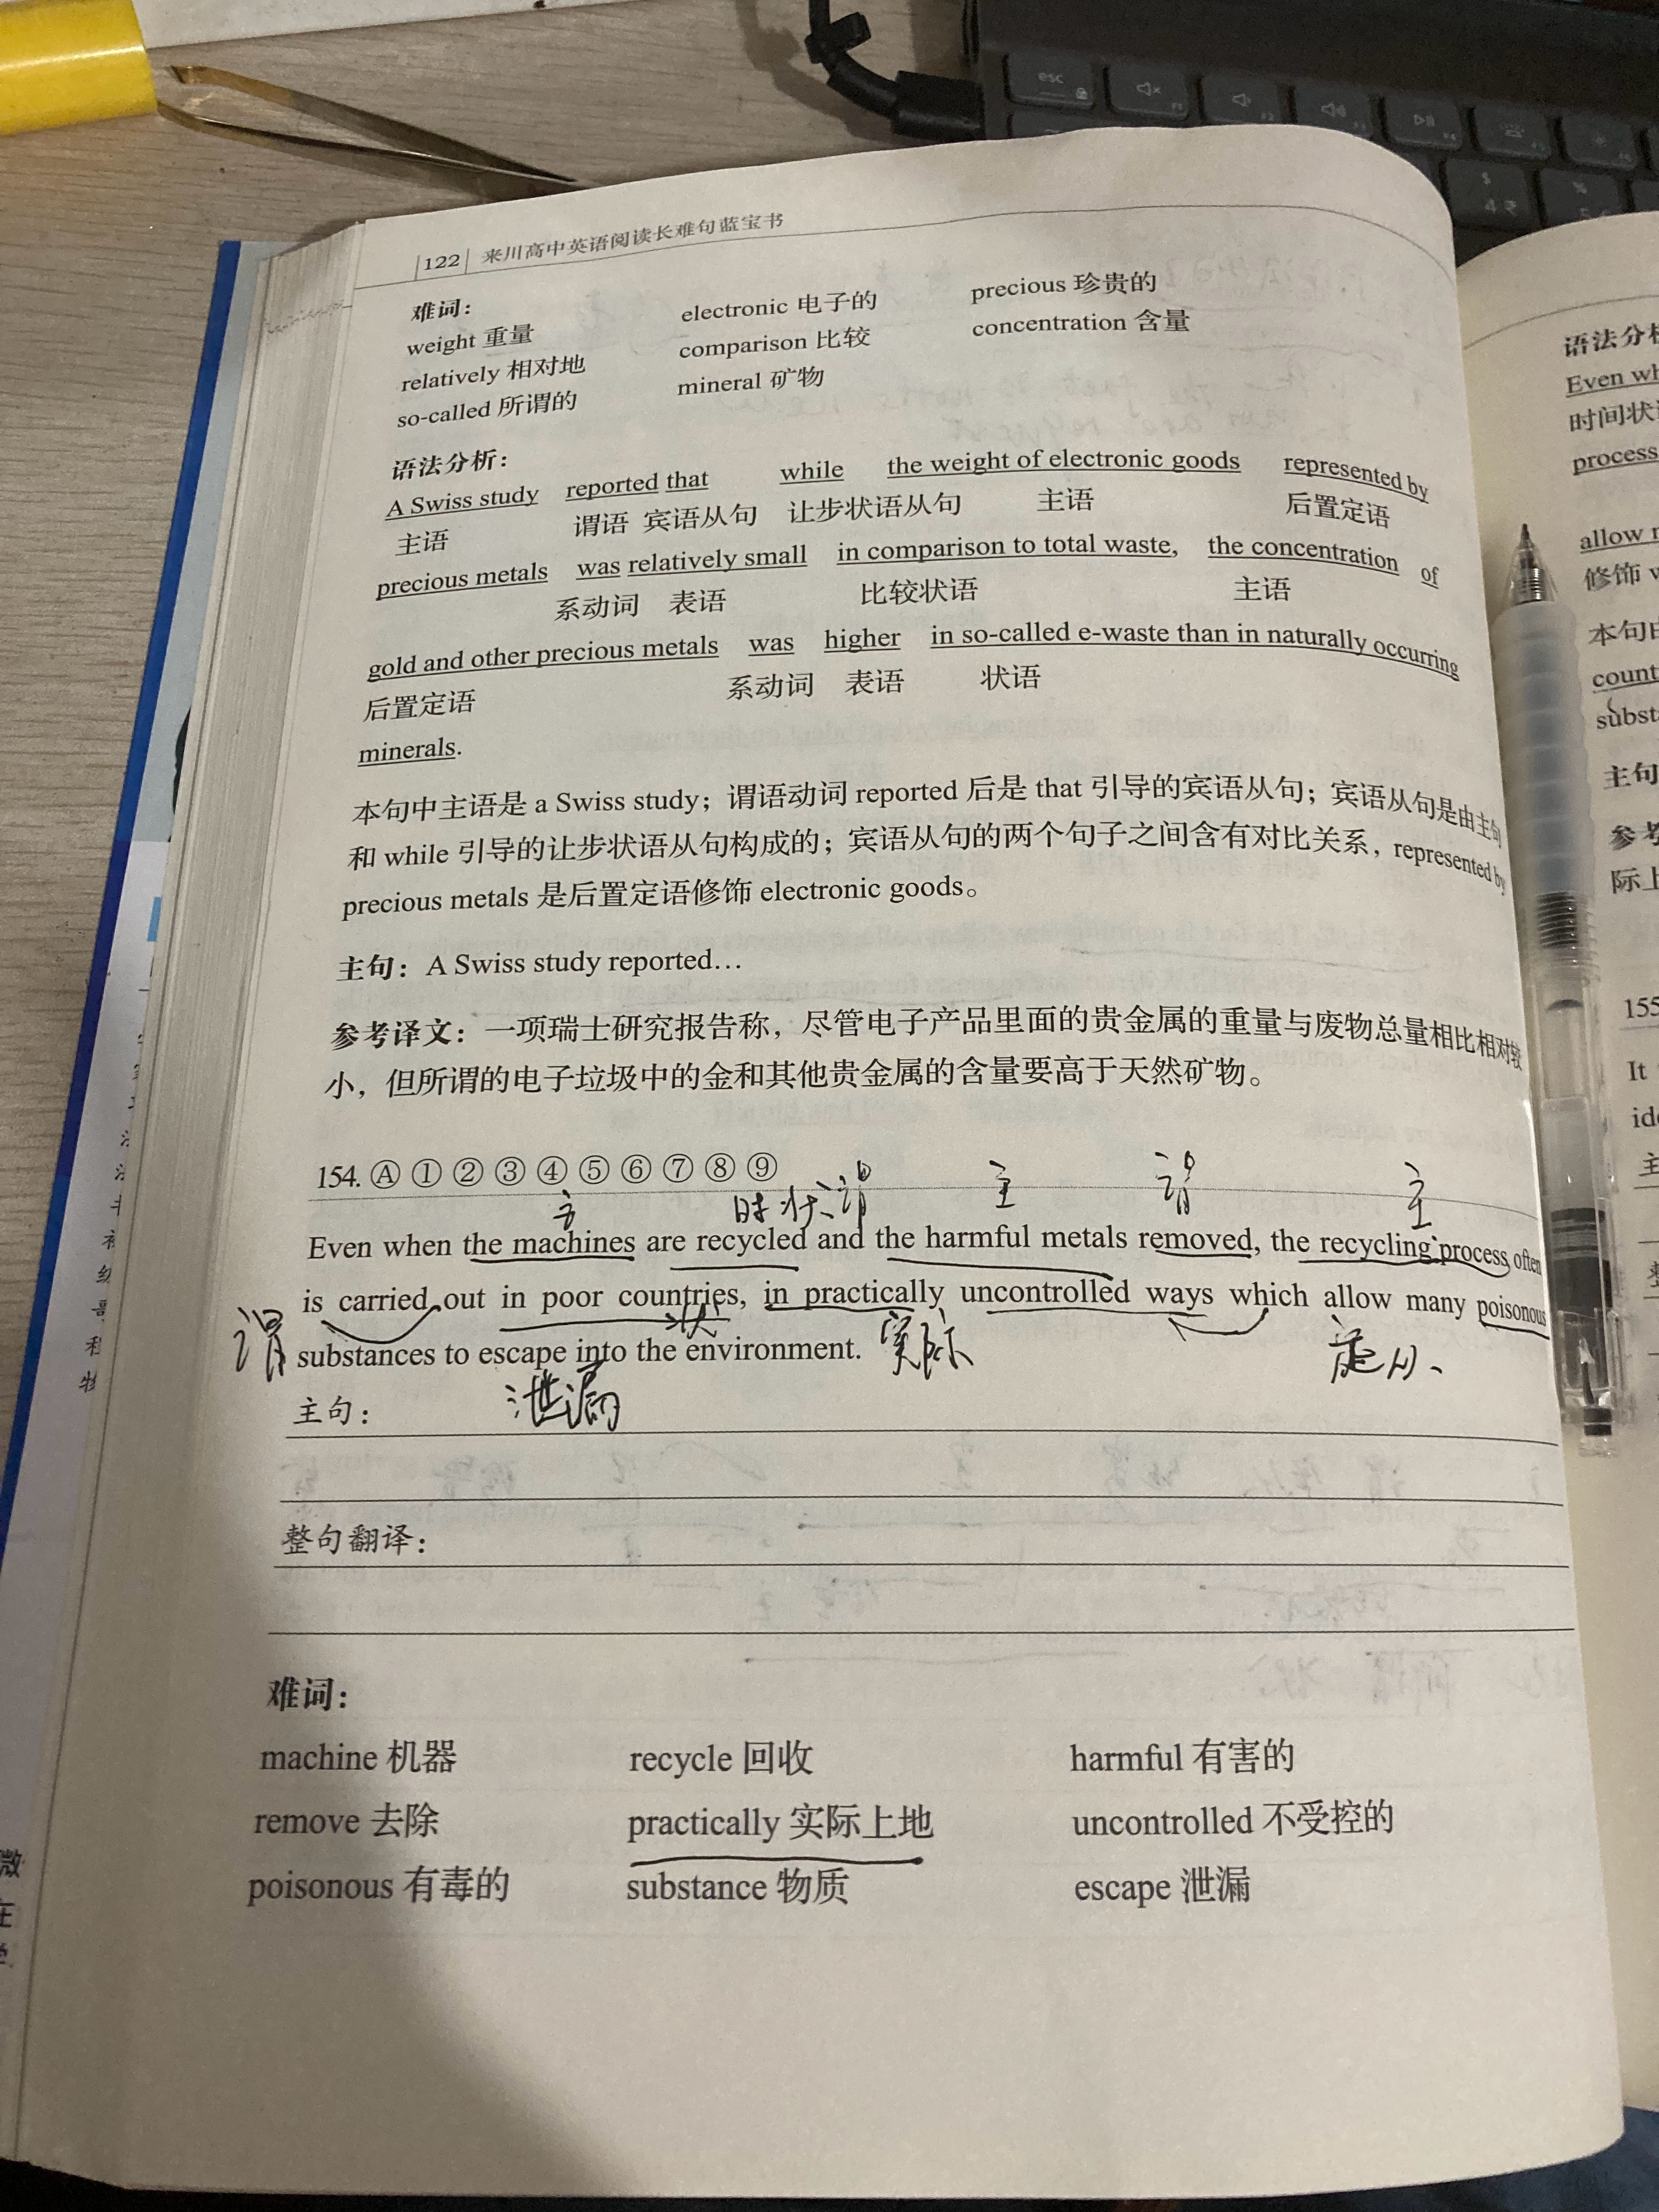 122 来川高中英语阅读长难句蓝宝书
难词：
weight 重量 electronic 电子的 precious 珍贵的
relatively 相对地 comparison 比较 concentration 含量
so-called 所谓的 mineral 矿物
语法分析：
A Swiss study reported that while the weight of electronic goods represented by
主语 谓语 宾语从句 让步状语从句 主语 后置定语
precious metals was relatively small in comparison to total waste, the concentration of
系动词 表语 比较状语 主语
gold and other precious metals was higher in so-called e-waste than in naturally occurring
后置定语 系动词 表语 状语
minerals.
本句中主语是 a Swiss study；谓语动词 reported 后是 that 引导的宾语从句；宾语从句是由主句
和 while 引导的让步状语从句构成的；宾语从句的两个句子之间含有对比关系，represented by
precious metals 是后置定语修饰 electronic goods。
主句：A Swiss study reported…
参考译文：一项瑞士研究报告称，尽管电子产品里面的贵金属的重量与废物总量相比相对较
小，但所谓的电子垃圾中的金和其他贵金属的含量要高于天然矿物。
154. Ⓐ ① ② ③ ④ ⑤ ⑥ ⑦ ⑧ ⑨
主 时状 谓 主 谓 主
Even when the machines are recycled and the harmful metals removed, the recycling process often
is carried out in poor countries, in practically uncontrolled ways which allow many poisonous
谓 状 实际 定从
substances to escape into the environment.
泄漏
主句：
整句翻译：
难词：
machine 机器 recycle 回收 harmful 有害的
remove 去除 practically 实际上地 uncontrolled 不受控的
poisonous 有毒的 substance 物质 escape 泄漏
语法分析
Even wh
时间状
process
allow
修饰
本句由
count
subst
主句
参考
际上
155
It
主
esc